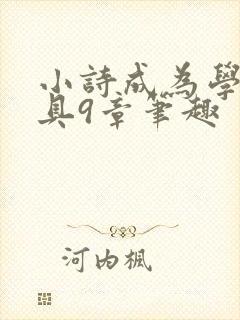 小詩成為學
具9章筆趣
河内楓